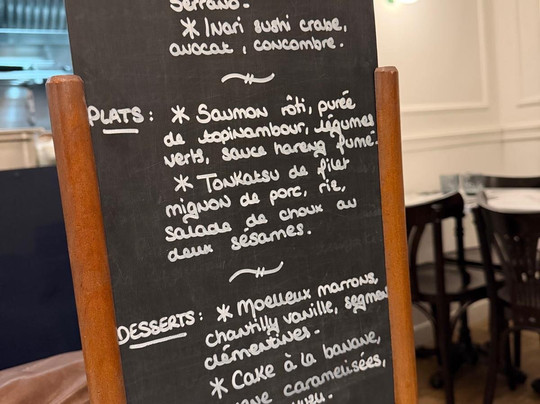 Serrano.
* Inari sushi crabe,
avocat, concombre.
PLATS: * Saumon rôti, purée
de topinambour, légumes
verts, sauce hareng fumé.
* Tonkatsu de filet
mignon de porc, riz,
salade de choux au
deux sésames.
DESSERTS: * Moelleux marrons,
chantilly vanille, segmen
clémentines.
* Cake à la banane,
caramelisées,